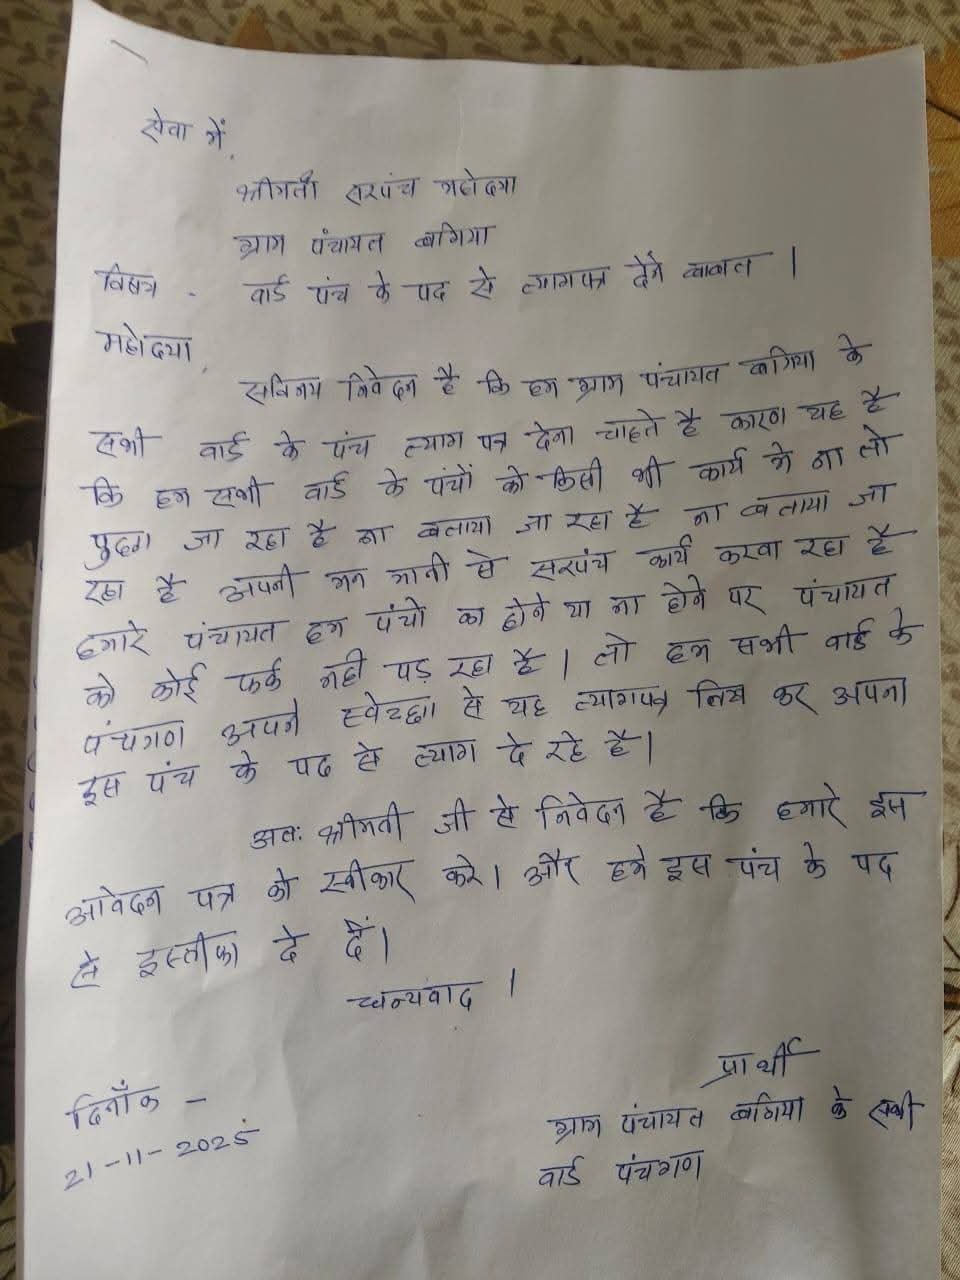 सेवा में,
श्रीमती सरपंच महोदया
ग्राम पंचायत बगिया
विषय - वार्ड पंच के पद से त्यागपत्र देने बाबत ।
महोदया,
सविनय निवेदन है कि हम ग्राम पंचायत बगिया के
सभी वार्ड के पंच त्याग पत्र देना चाहते है कारण यह है
कि हम सभी वार्ड के पंचों को किसी भी कार्य में ना तो
पुछा जा रहा है ना बताया जा रहा है ना बताया जा
रहा है अपनी मन मानी से सरपंच कार्य करवा रहा है
हमारे पंचायत हम पंचो का होने या ना होने पर पंचायत
को कोई फर्क नही पड़ रहा है । तो हम सभी वार्ड के
पंचगण अपने स्वेच्छा से यह त्यागपत्र लिख कर अपना
इस पंच के पद से त्याग दे रहे है।
अतः श्रीमती जी से निवेदन है कि हमारे इस
आवेदन पत्र को स्वीकार करे। और हमे इस पंच के पद
से इस्तीफा दे दें।
धन्यवाद ।
प्रार्थी
दिनाँक -
ग्राम पंचायत बगिया के सभी
21-11-2025
वार्ड पंचगण